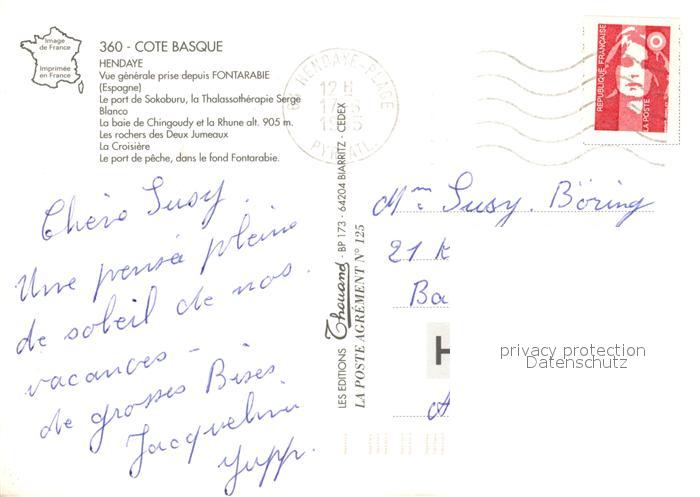 Image
de France
Imprimée
en France
360 - COTE BASQUE
HENDAYE
Vue générale prise depuis FONTARABIE
(Espagne)
Le port de Sokoburu, la Thalassothérapie Serge
Blanco
La baie de Chingoudy et la Rhune alt. 905 m.
Les rochers des Deux Jumeaux
La Croisière
Le port de pêche, dans le fond Fontarabie.
Chère Susy.
Une pensée pleine
de soleil de nos.
vacances -
de grosses Bises
Jacqueline
Yupp.
LES EDITIONS Thouand - BP 173 - 64204 BIARRITZ - CEDEX
LA POSTE AGRÉMENT N° 125
HENDAYE-PLAGE
12 H
PYR. ATL.
REPUBLIQUE FRANÇAISE
LA POSTE
Mme Susy. Böring
21 K
Ba
H
A
privacy protection
Datenschutz